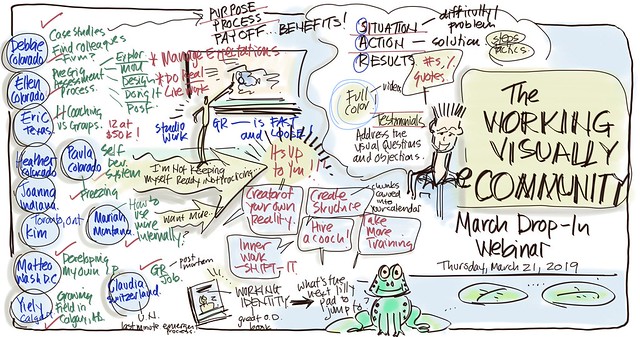 PURPOSE
PROCESS
PAYOFF... BENEFITS!
Debbie
Colorado
Case studies
Find colleagues
Firm?
Ellen
Colorado
Pre Grig
Assessment
Process.
Explor
Design
Doing it
Post
* Manage Expectations
Eric
Texas
1:1 Coaching
vs Groups.
12 at
$50k!
Studio
Work
GR - is FAST
and LOOSE
Heather
Colorado
Paula
Colorado
Self
Dev.
System
I'm Not Keeping
Myself Ready, Not Practicing.
It's Up
to You!!
Joanna
Indiana
Freezing
Toronto, Ont
Kim
Mariah
Montana
How to
use
more
internally?
Want More
Creator of
your own
Reality
Create
Structure
chunks
carved
into
our calendar
Hire
a coach!
Take
More
Training
Inner
work
-SHIFT-IT
Matteo
Wash D.C.
Developing
My own I.P
GR
Job.
post
mortem
Yiely
Calgary
Growing
field in
Calgary, Alb
Claudia
Switzerland
U.N.
last minute emergent
process.
WORKING
IDENTITY
great O.D.
book
what's the
next lily
pad to
jump to?
SITUATION - difficulty/
problem
ACTION - solution
steps
tactics
RESULTS
#s, %
quotes
Full
Color
video
Testimonials
Address the
visual Questions
and objections.
The
WORKING
VISUALLY
COMMUNITY
March Drop-In
Webinar
Thursday, March 21, 2019